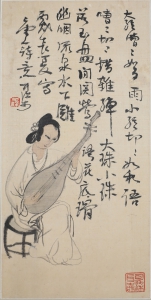 大絃嘈〻如急雨小絃切〻如私語
嘈〻切〻錯雜彈大珠小珠
落玉盤間關鶯語花底滑
幽咽流泉水下灘
長夏寫
詩意